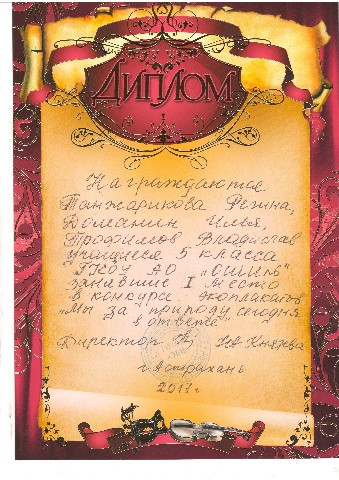 ДИПЛОМ
Награждаются
Танжарикова Регина,
Команин Илья,
Трофимов Владислав
учащиеся 5 класса
ГКОУ АО
занявшие I место
в конкурсе экоплакатов
„Мы за природу сегодня
в ответе".
Директор НА Князева
г. Астрахань
2017 г.